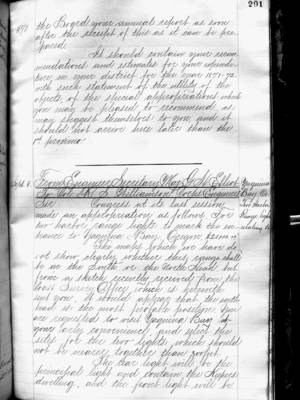 291
1871
the Board your annual report as soon
after the receipt of this as it can be pre-
pared.
It should contain your recom-
mendations and estimates for your expendi-
ture in your district for the year 1871-72.
with such statement of the utility of the
objects, of the special appropriations which
you may be pleased to recommend as
may suggest themselves to you, and it
should not arrive here later than the
1st proximo.
From Engineer Secretary Maj. G. H. Elliot
To Col. R. S. Williamson, Corps Engineers
Yaquina
Bay
Sir Congress at its last session
made an appropriation as follows "For
two harbor range lights to mark the en-
trance to Yaquina Bay, Oregon
The maps which we have do
not show clearly whether this range shall
be on the South or the North Head but
from a sketch recently received from the
Coast Survey Office, which is herewith
sent you, it would appear that the north
head is the most probable position. You
are requested to visit Yaquina Bay at
your early convenience, and select the
sites for the two lights, which should
not be nearer together than
The rear light will be the
principal light and contain the Keepers
dwelling, and the front light will be